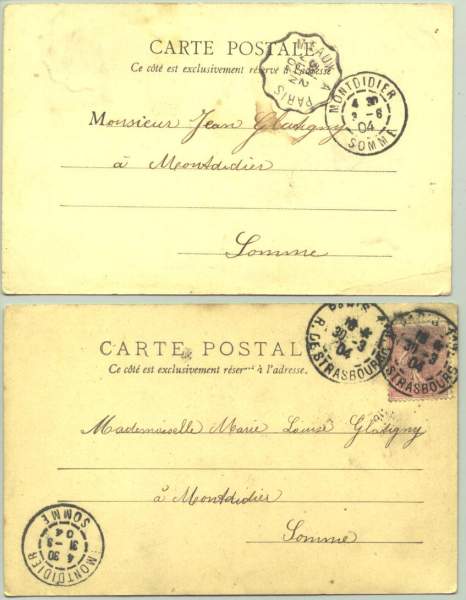 CARTE POSTALE
Ce côté est exclusivement réservé à l'adresse
MEAUX A PARIS
MONTDIDIER
4 30
2 -6
04
SOMME
Monsieur Jean Glatigny
à Montdidier
Somme
PARIS
R. DE STRASBOURG
30 -3
04
PARIS
R. DE STRASBOURG
30 -3
04
CARTE POSTALE
Ce côté est exclusivement réservé à l'adresse.
Mademoiselle Marie Louise Glatigny
à Montdidier
Somme
MONTDIDIER
4 30
31 -3
04
SOMME